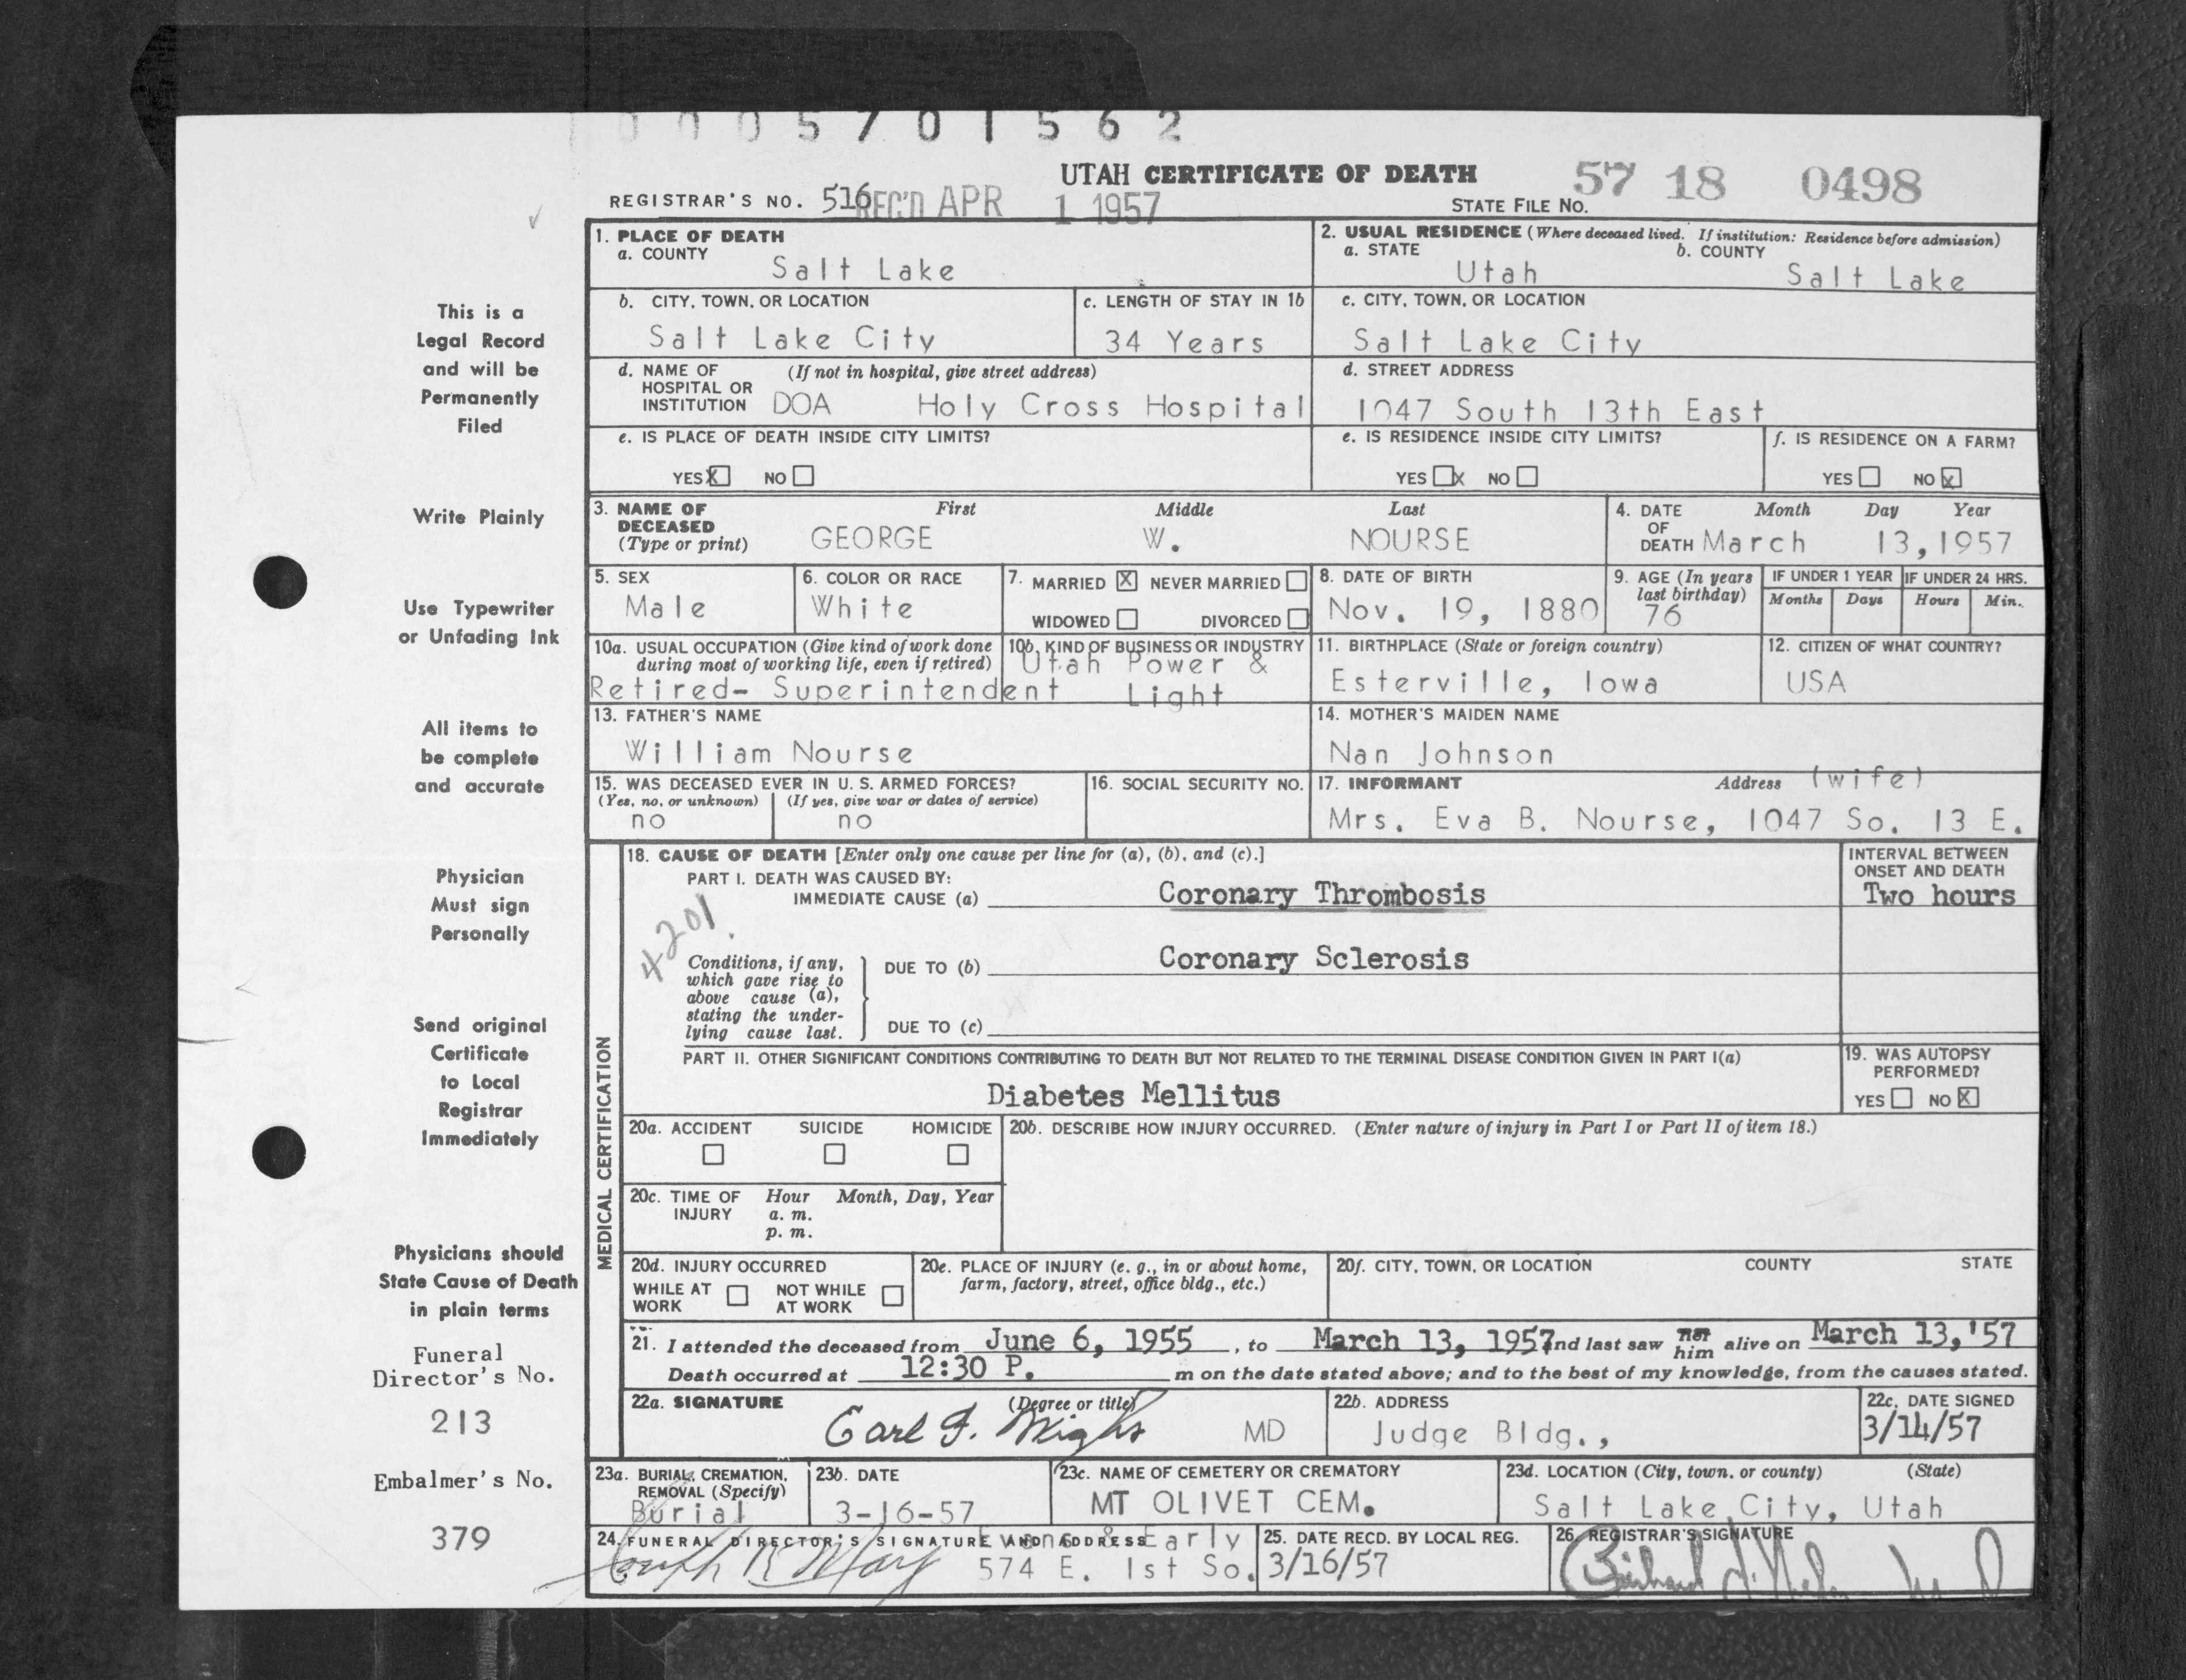 0005701562
UTAH CERTIFICATE OF DEATH
57 18 0498
REGISTRAR'S NO. 516
REC'D APR 1 1957
STATE FILE NO.
1. PLACE OF DEATH
a. COUNTY
Salt Lake
2. USUAL RESIDENCE (Where deceased lived. If institution: Residence before admission)
a. STATE b. COUNTY
Utah Salt Lake
b. CITY, TOWN, OR LOCATION
Salt Lake City
c. LENGTH OF STAY IN 1b
34 Years
c. CITY, TOWN, OR LOCATION
Salt Lake City
d. NAME OF HOSPITAL OR INSTITUTION (If not in hospital, give street address)
DOA Holy Cross Hospital
d. STREET ADDRESS
1047 South 13th East
e. IS PLACE OF DEATH INSIDE CITY LIMITS?
YES X NO
e. IS RESIDENCE INSIDE CITY LIMITS?
YES X NO
f. IS RESIDENCE ON A FARM?
YES NO X
3. NAME OF DECEASED (Type or print)
First Middle Last
GEORGE W. NOURSE
4. DATE OF DEATH Month Day Year
March 13, 1957
5. SEX
Male
6. COLOR OR RACE
White
7. MARRIED X NEVER MARRIED
WIDOWED DIVORCED
8. DATE OF BIRTH
Nov. 19, 1880
9. AGE (In years last birthday)
76
IF UNDER 1 YEAR IF UNDER 24 HRS.
Months Days Hours Min.
10a. USUAL OCCUPATION (Give kind of work done during most of working life, even if retired)
Retired- Superintendent
10b. KIND OF BUSINESS OR INDUSTRY
Utah Power &
Light
11. BIRTHPLACE (State or foreign country)
Esterville, Iowa
12. CITIZEN OF WHAT COUNTRY?
USA
13. FATHER'S NAME
William Nourse
14. MOTHER'S MAIDEN NAME
Nan Johnson
15. WAS DECEASED EVER IN U. S. ARMED FORCES?
(Yes, no, or unknown) (If yes, give war or dates of service)
no no
16. SOCIAL SECURITY NO.
17. INFORMANT Address (wife)
Mrs. Eva B. Nourse, 1047 So. 13 E.
MEDICAL CERTIFICATION
18. CAUSE OF DEATH [Enter only one cause per line for (a), (b), and (c).]
PART I. DEATH WAS CAUSED BY:
IMMEDIATE CAUSE (a) Coronary Thrombosis
INTERVAL BETWEEN
ONSET AND DEATH
Two hours
4201.
Conditions, if any,
which gave rise to
above cause (a),
stating the under-
lying cause last.
DUE TO (b) Coronary Sclerosis
DUE TO (c)
PART II. OTHER SIGNIFICANT CONDITIONS CONTRIBUTING TO DEATH BUT NOT RELATED TO THE TERMINAL DISEASE CONDITION GIVEN IN PART I(a)
Diabetes Mellitus
19. WAS AUTOPSY PERFORMED?
YES NO X
20a. ACCIDENT SUICIDE HOMICIDE
20b. DESCRIBE HOW INJURY OCCURRED. (Enter nature of injury in Part I or Part II of item 18.)
20c. TIME OF INJURY Hour Month, Day, Year
a. m.
p. m.
20d. INJURY OCCURRED
WHILE AT WORK NOT WHILE AT WORK
20e. PLACE OF INJURY (e. g., in or about home, farm, factory, street, office bldg., etc.)
20f. CITY, TOWN, OR LOCATION COUNTY STATE
21. I attended the deceased from June 6, 1955, to March 13, 1957 and last saw her him alive on March 13,'57
Death occurred at 12:30 P. m on the date stated above; and to the best of my knowledge, from the causes stated.
22a. SIGNATURE (Degree or title)
Earl F. Wight MD
22b. ADDRESS
Judge Bldg.,
22c. DATE SIGNED
3/14/57
23a. BURIAL, CREMATION, REMOVAL (Specify)
Burial
23b. DATE
3-16-57
23c. NAME OF CEMETERY OR CREMATORY
MT OLIVET CEM.
23d. LOCATION (City, town, or county) (State)
Salt Lake City, Utah
24. FUNERAL DIRECTOR'S SIGNATURE AND ADDRESS
Evans & Early
574 E. 1st So.
25. DATE RECD. BY LOCAL REG.
3/16/57
26. REGISTRAR'S SIGNATURE
This is a
Legal Record
and will be
Permanently
Filed
Write Plainly
Use Typewriter
or Unfading Ink
All items to
be complete
and accurate
Physician
Must sign
Personally
Send original
Certificate
to Local
Registrar
Immediately
Physicians should
State Cause of Death
in plain terms
Funeral
Director's No.
213
Embalmer's No.
379